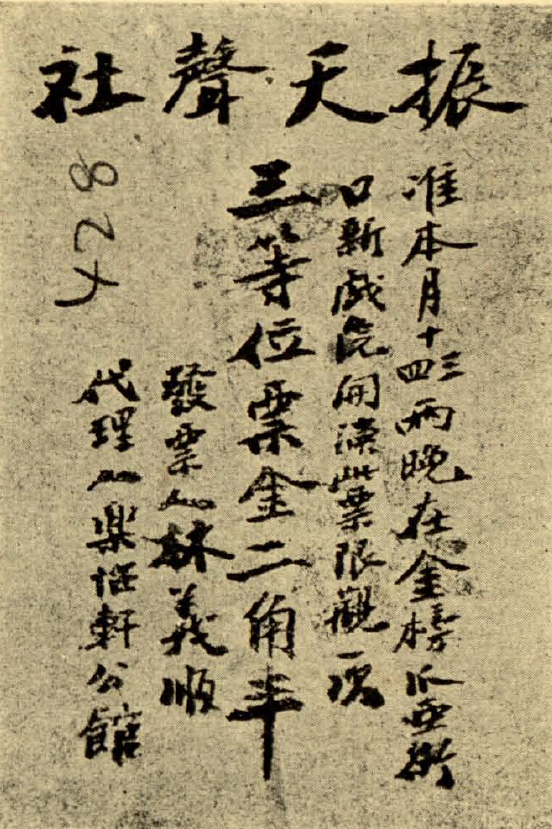 振天聲社
准本月十三四兩晚在金榜爪亞街
口新戲院開演此票限觀一次
三等位票金二角半
發票人林義順
代理人樂恆軒公館